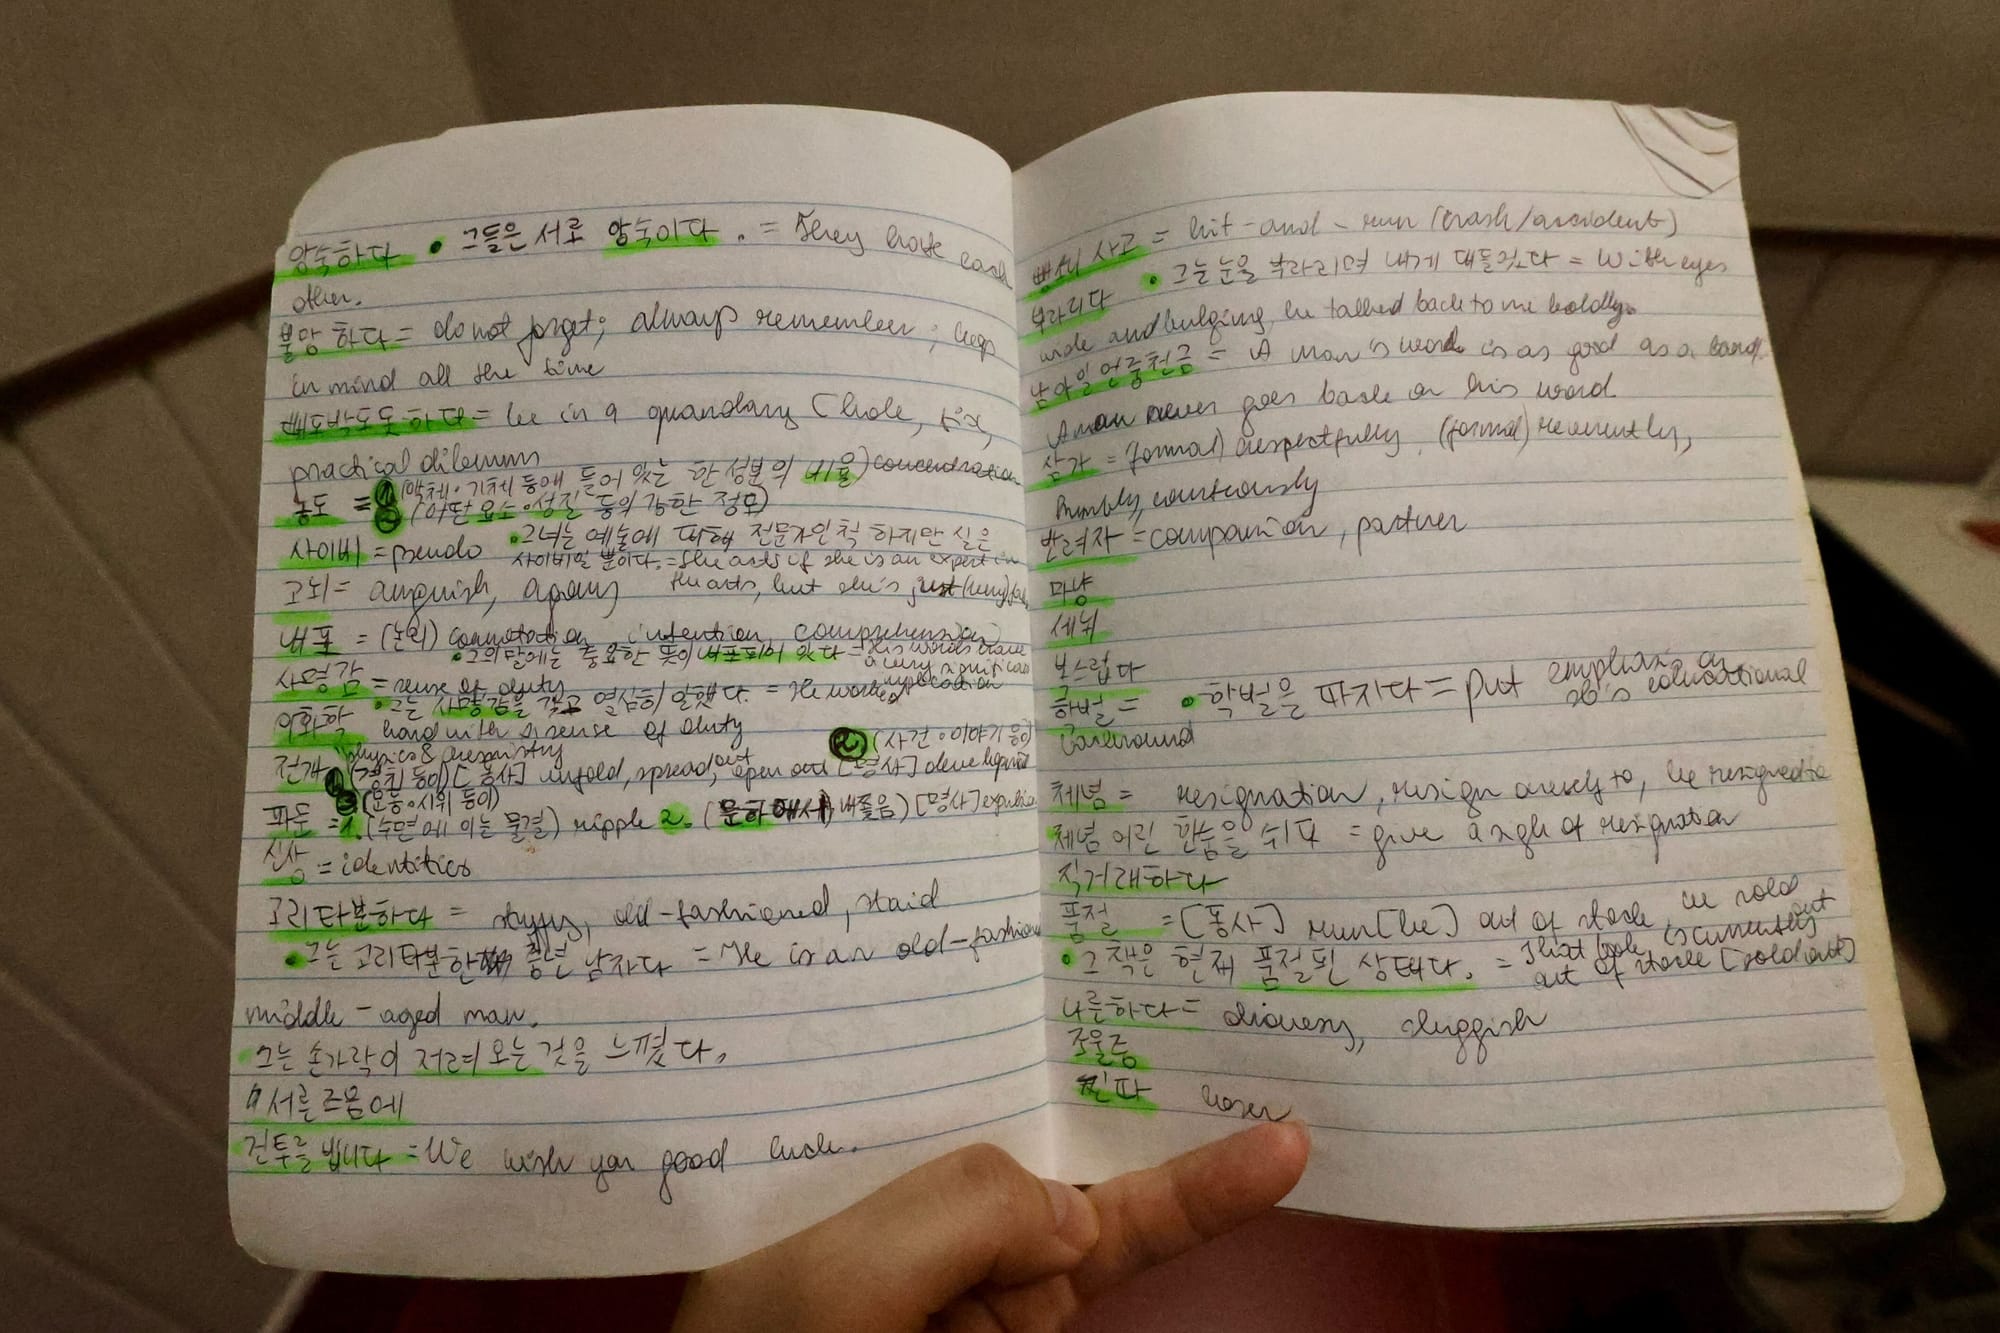 앙숙하다 • 그들은 서로 앙숙이다. = They hate each
other.
불망하다 = do not forget; always remember; keep
in mind all the time
빼도박도못하다 = be in a quandary (hole, fix,
practical dilemma
농도 = ① (액체·기체 등에 들어 있는 한 성분의 비율) concentration
② (어떤 요소·성질 등의 강한 정도)
사이비 = pseudo • 그녀는 예술에 대해 전문가인 척 하지만 실은
사이비일 뿐이다. = She acts if she is an expert in
the arts, but she's just
고뇌 = anguish, agony
내포 = (논리) connotation, intention, comprehension
• 그의 말에는 중요한 뜻이 내포되어 있다 = His words have
a very significant
implication
사명감 = sense of duty
• 그는 사명감을 갖고 열심히 일했다. = He worked
hard with a sense of duty
이화학
physics & chemistry
전개 ① (경치 등이) [동사] unfold, spread, open out ② (사건·이야기 등이)
[명사] development
파문 = 1. (수면에 이는 물결) ripple 2. (문하에서 내쫓음) [명사] expulsion
신상 = identities
고리타분하다 = stuffy, old-fashioned, staid
• 그는 고리타분한 중년 남자다 = He is an old-fashioned
middle-aged man.
• 그는 손가락이 저려 오는 것을 느꼈다.
서른 즈음에
건투를 빕니다 = We wish you good luck.
뺑소니 사고 = hit-and-run (crash/accident)
부라리다 • 그는 눈을 부라리며 내게 대들었다 = With eyes
wide and bulging, he talked back to me boldly.
남아일언중천금 = A man's word is as good as a bond.
A man never goes back on his word
삼가 = (formal) respectfully, (formal) reverently,
humbly, courteously
반려자 = companion, partner
마냥
세뇌
보스럽다
학벌 = • 학벌을 따지다 = put emphasis on
sb's educational
background
체념 = resignation, resign oneself to, be resigned to
체념 어린 한숨을 쉬다 = give a sigh of resignation
직거래하다
품절 = [동사] run [be] out of stock, be sold
out
• 그 책은 현재 품절된 상태다. = That book is currently
out of stock [sold out]
나른하다 = drowsy, sluggish
조울증
찐따 loser